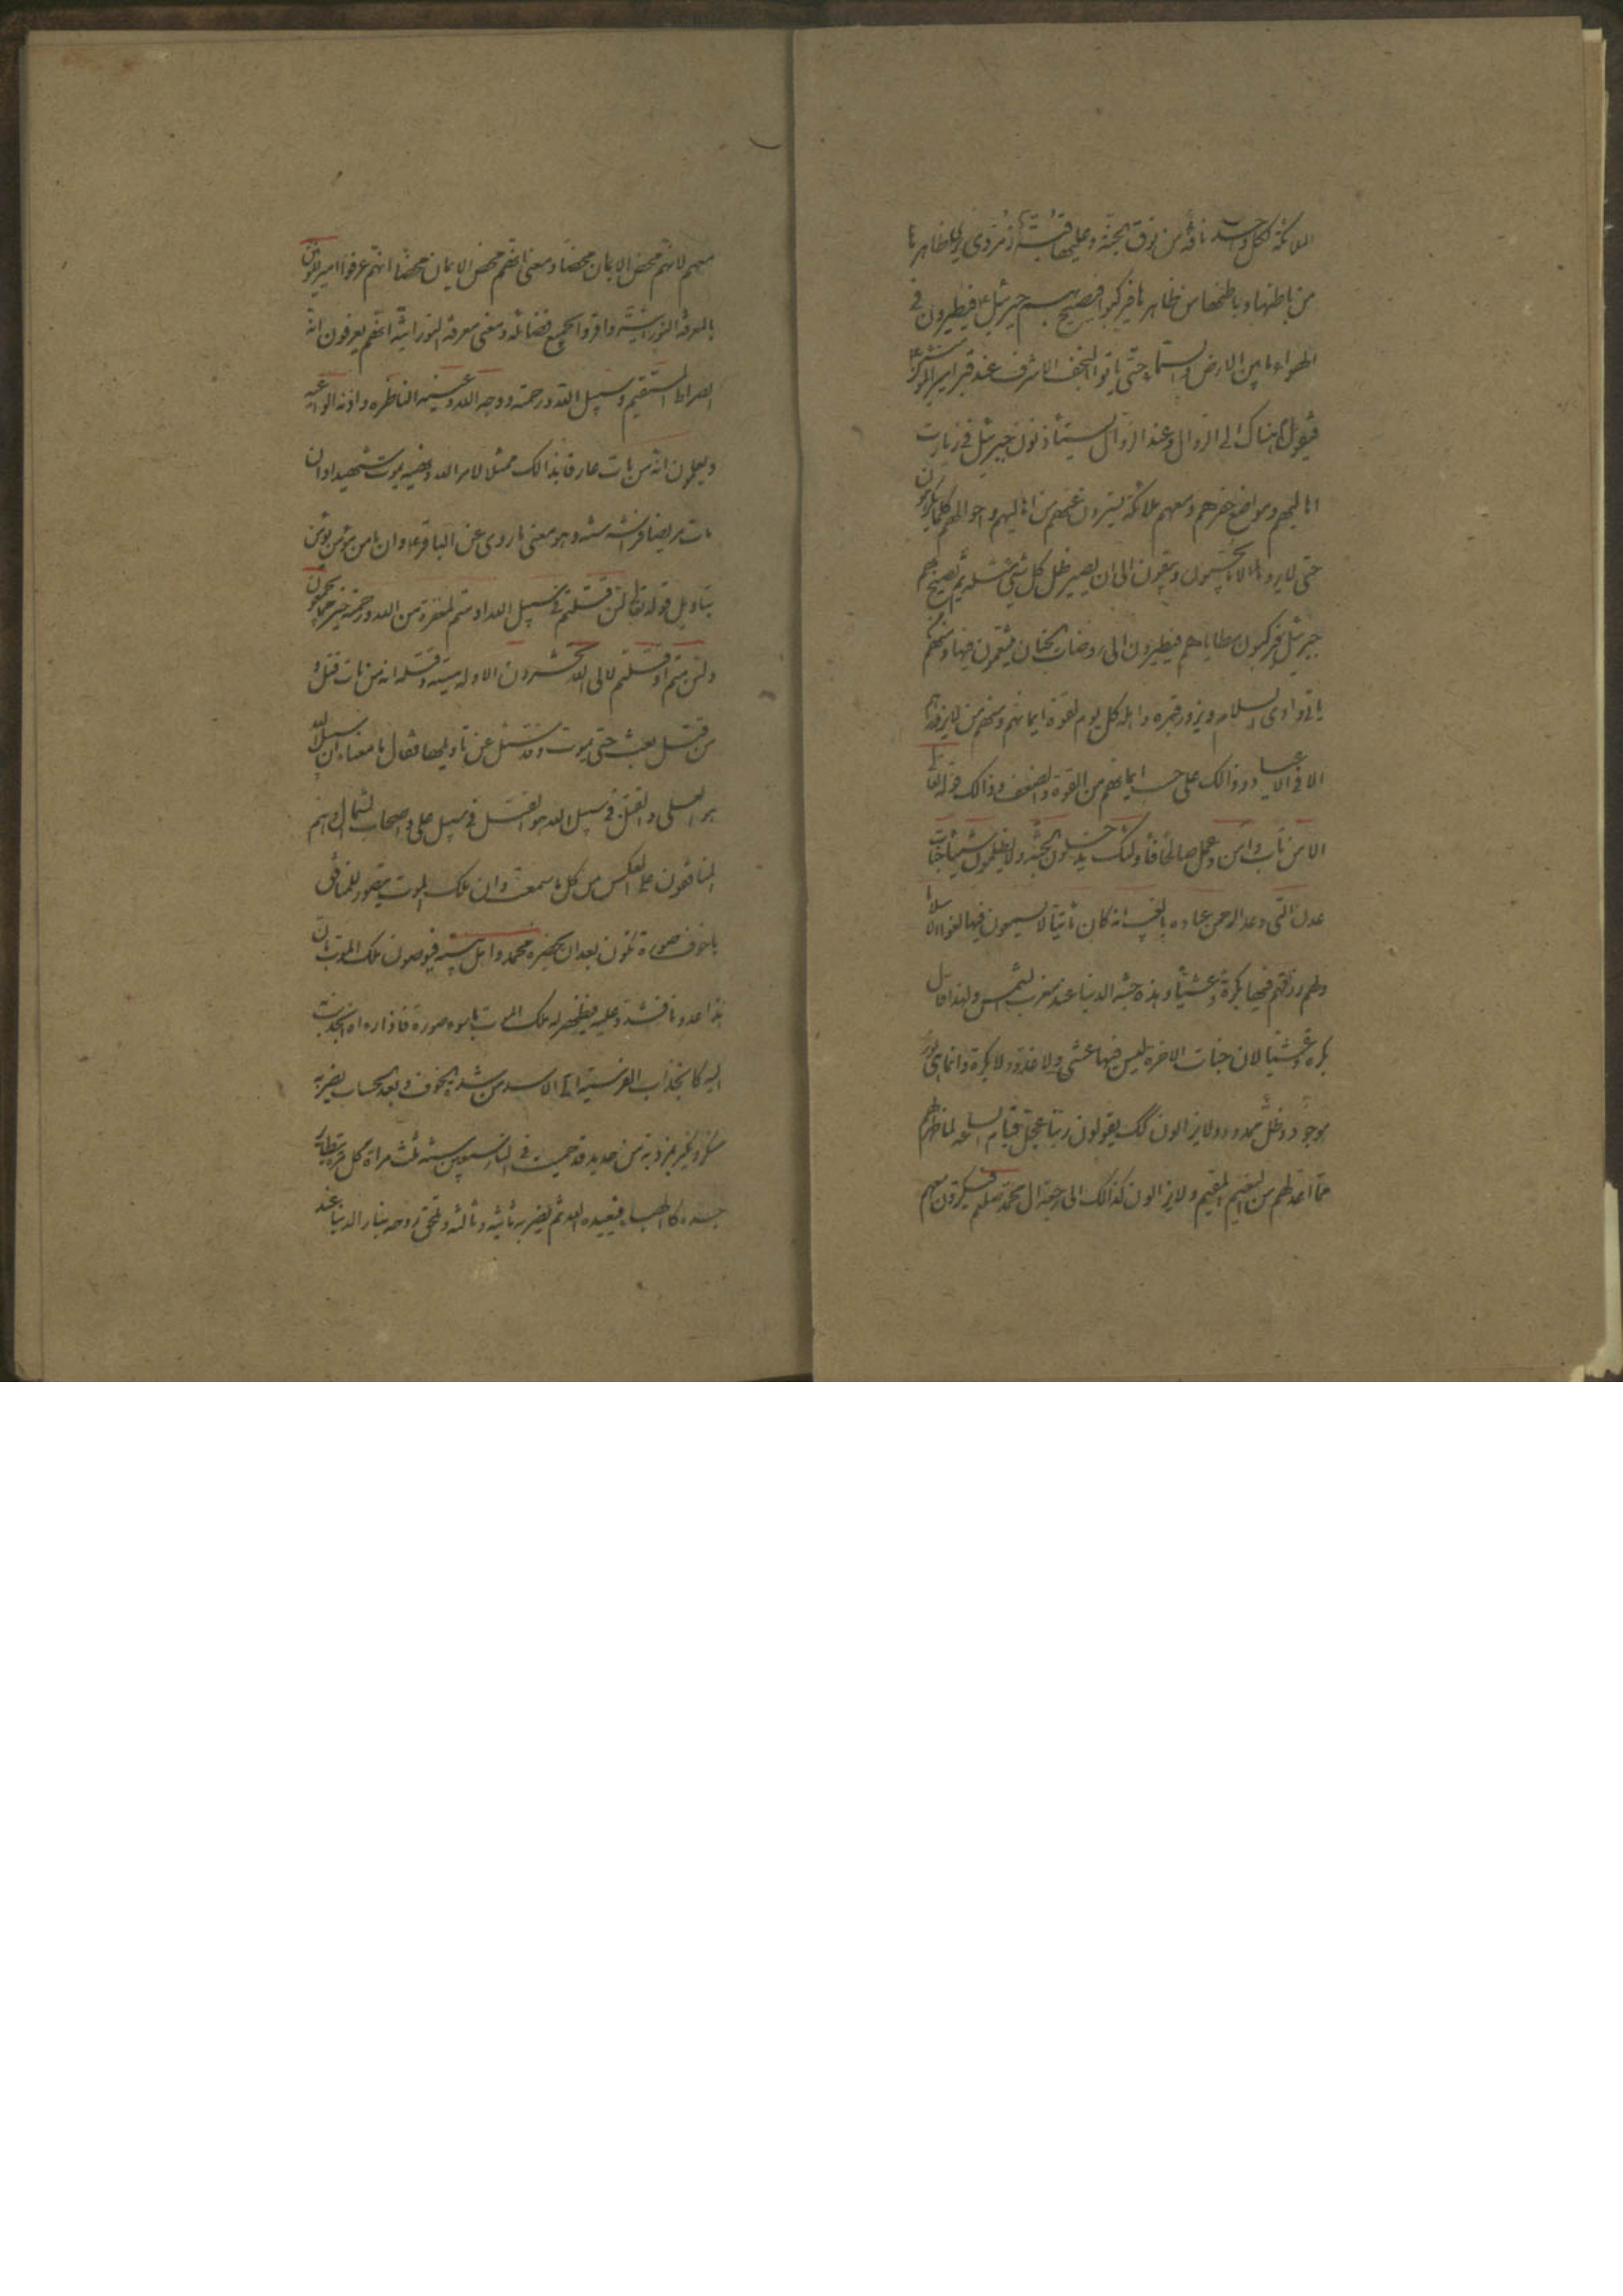 الملائكة لكل واحد ناقة من نوق الجنة وعليها قبة زمردى يرى ظاهرها
من باطنها وباطنها من ظاهرها فيركبوا فيصيح بهم جبرئيل ع فيطيرون في
الهواء ما بين الارض والسماء حتى ياتوا النجف الاشرف عند قبر امير المؤمنين
هناك الى الزوال وعند الزوال يستأذنون جبرئيل في زيارت
اهاليهم ومواضع حفرهم ومعهم ملائكة يسترون عنهم من اهاليهم واحوالهم كلما يكرهون
حتى لا يروا الا ما يحبون ويبقون الى ان يصير ظل كل شئ مثله ثم يصيح بهم
جبرئيل فيركبون مطاياهم فيطيرون الى روضات الجنان فيتنعمون فيها ومنهم
ياتى وادى السلام ويزور قبره واهله كل يوم لقوة ايمانهم ومنهم من لا يزور
الا في الاعياد وذالك على حسب ايمانهم من القوة والضعف وذالك قوله تعالى
الا من تاب وامن وعمل صالحا فاولئك يدخلون الجنة ولا يظلمون شيئا جنات
عدن التي وعد الرحمن عباده بالغيب انه كان ماتيا لا يسمعون فيها لغوا الا سلاما
ولهم رزقهم فيها بكرة وعشيا وهذه جنة الدنيا عند مغرب الشمس ولهذا قال
بكرة وعشيا لان جنات الاخرة ليس فيها عشى ولا غدو ولا بكرة وانما هى نور
موجود وظل ممدود ولا يزالون كك يقولون ربنا عجل قيام الساعة لما ظهر لهم
مما اعد لهم من النعيم المقيم ولا يزالون كذالك الى رجعة ال محمد صلعم فيكرون معهم
معهم لانهم محض الايمان محضا ومعنى انهم محض الايمان محضا انهم عرفوا امير المؤمنين
بالمعرفة النورانية واقروا بجميع فضائله ومعنى معرفة النورانية انهم يعرفون انه
الصراط المستقيم وسبيل الله ورحمته ووجه الله وعينه الناظره واذنه الواعيه
ويعلمون انه من مات عارفا بذالك ممتثلا لامر الله ونهيه يموت شهيدا وان
مات مريضا فراشه وهو معنى ما روى عن الباقر ع وان ما من مؤمن يؤمن
بتاويل قوله تعالى لئن قتلتم في سبيل الله او متم لمغفرة من الله ورحمة خير مما يجمعون
ولئن متم او قتلتم لالى الله تحشرون الا وله ميتة وقتلة انه من مات قتل و
من قتل يبعث حتى يموت وقد سئل عن تاويلها فقال ما معناه ان سبيل الله
هو العلى والقتل في سبيل الله هو القتل في سبيل على واصحاب الشمال وهم
المنافقون على العكس من كل ما سمعت وان ملك الموت يتصور للمنافق
باخوف صورة تكون بعد ان يحضره محمد واهل بيته فيوصون ملك الموت بان
هذا عدونا فشدد عليه فيظهر له ملك الموت باسوء صورة فاذا راه انجذبت
اليه كانجذاب الفريسة الى الاسد من شدة الخوف وبعد الحساب يضربه
منكر ونكير بمرزبة من حديد قد حميت في النار سبعين سنة ثلث مراة كل مرة يتطاير
جسده كالهباء فيعيده الله ثم يضربه ثانية وثالثة وتلحق روحه بنار الدنيا عند